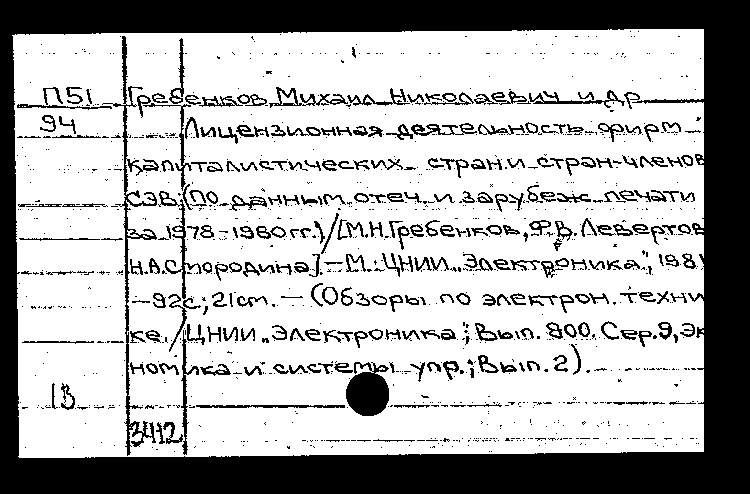 П51 Гребенков Михаил Николаевич и др
94 Лицензионная деятельность фирм
капиталистических стран и стран-членов
СЭВ: (По данным отеч. и зарубеж. печати
за 1978-1980гг.)/[М.Н.Гребенков, Ф.В. Левертов
Н.А.Смородина].-М.: ЦНИИ „Электроника", 1981
-92с; 21cm. - (Обзоры по электрон. техни
ке. / ЦНИИ „Электроника"; Вып. 800. Сер.9, Эк
номика и системы упр.; Вып. 2).
1В
3412